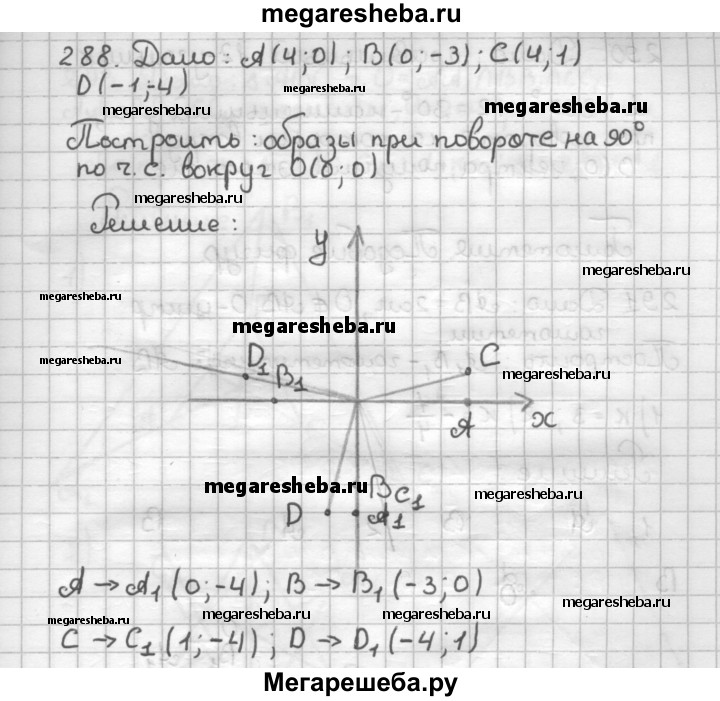 megaresheba.ru
288. Дано: A(4;0); B(0;-3); C(4;1)
D(-1;-4)
megaresheba.ru megaresheba.ru megaresheba.ru
Построить: образы при повороте на 90°
по ч.с. вокруг O(0;0)
megaresheba.ru
Решение:
y
megaresheba.ru
megaresheba.ru
megaresheba.ru
megaresheba.ru
D1 B1 C
megaresheba.ru
A x
megaresheba.ru
megaresheba.ru B C1
megaresheba.ru
D A1
megaresheba.ru
A → A1 (0;-4); B → B1 (-3;0)
megaresheba.ru
megaresheba.ru megaresheba.ru megaresheba.ru
C → C1 (1;-4); D → D1 (-4;1)
megaresheba.ru
Мегарешеба.ру